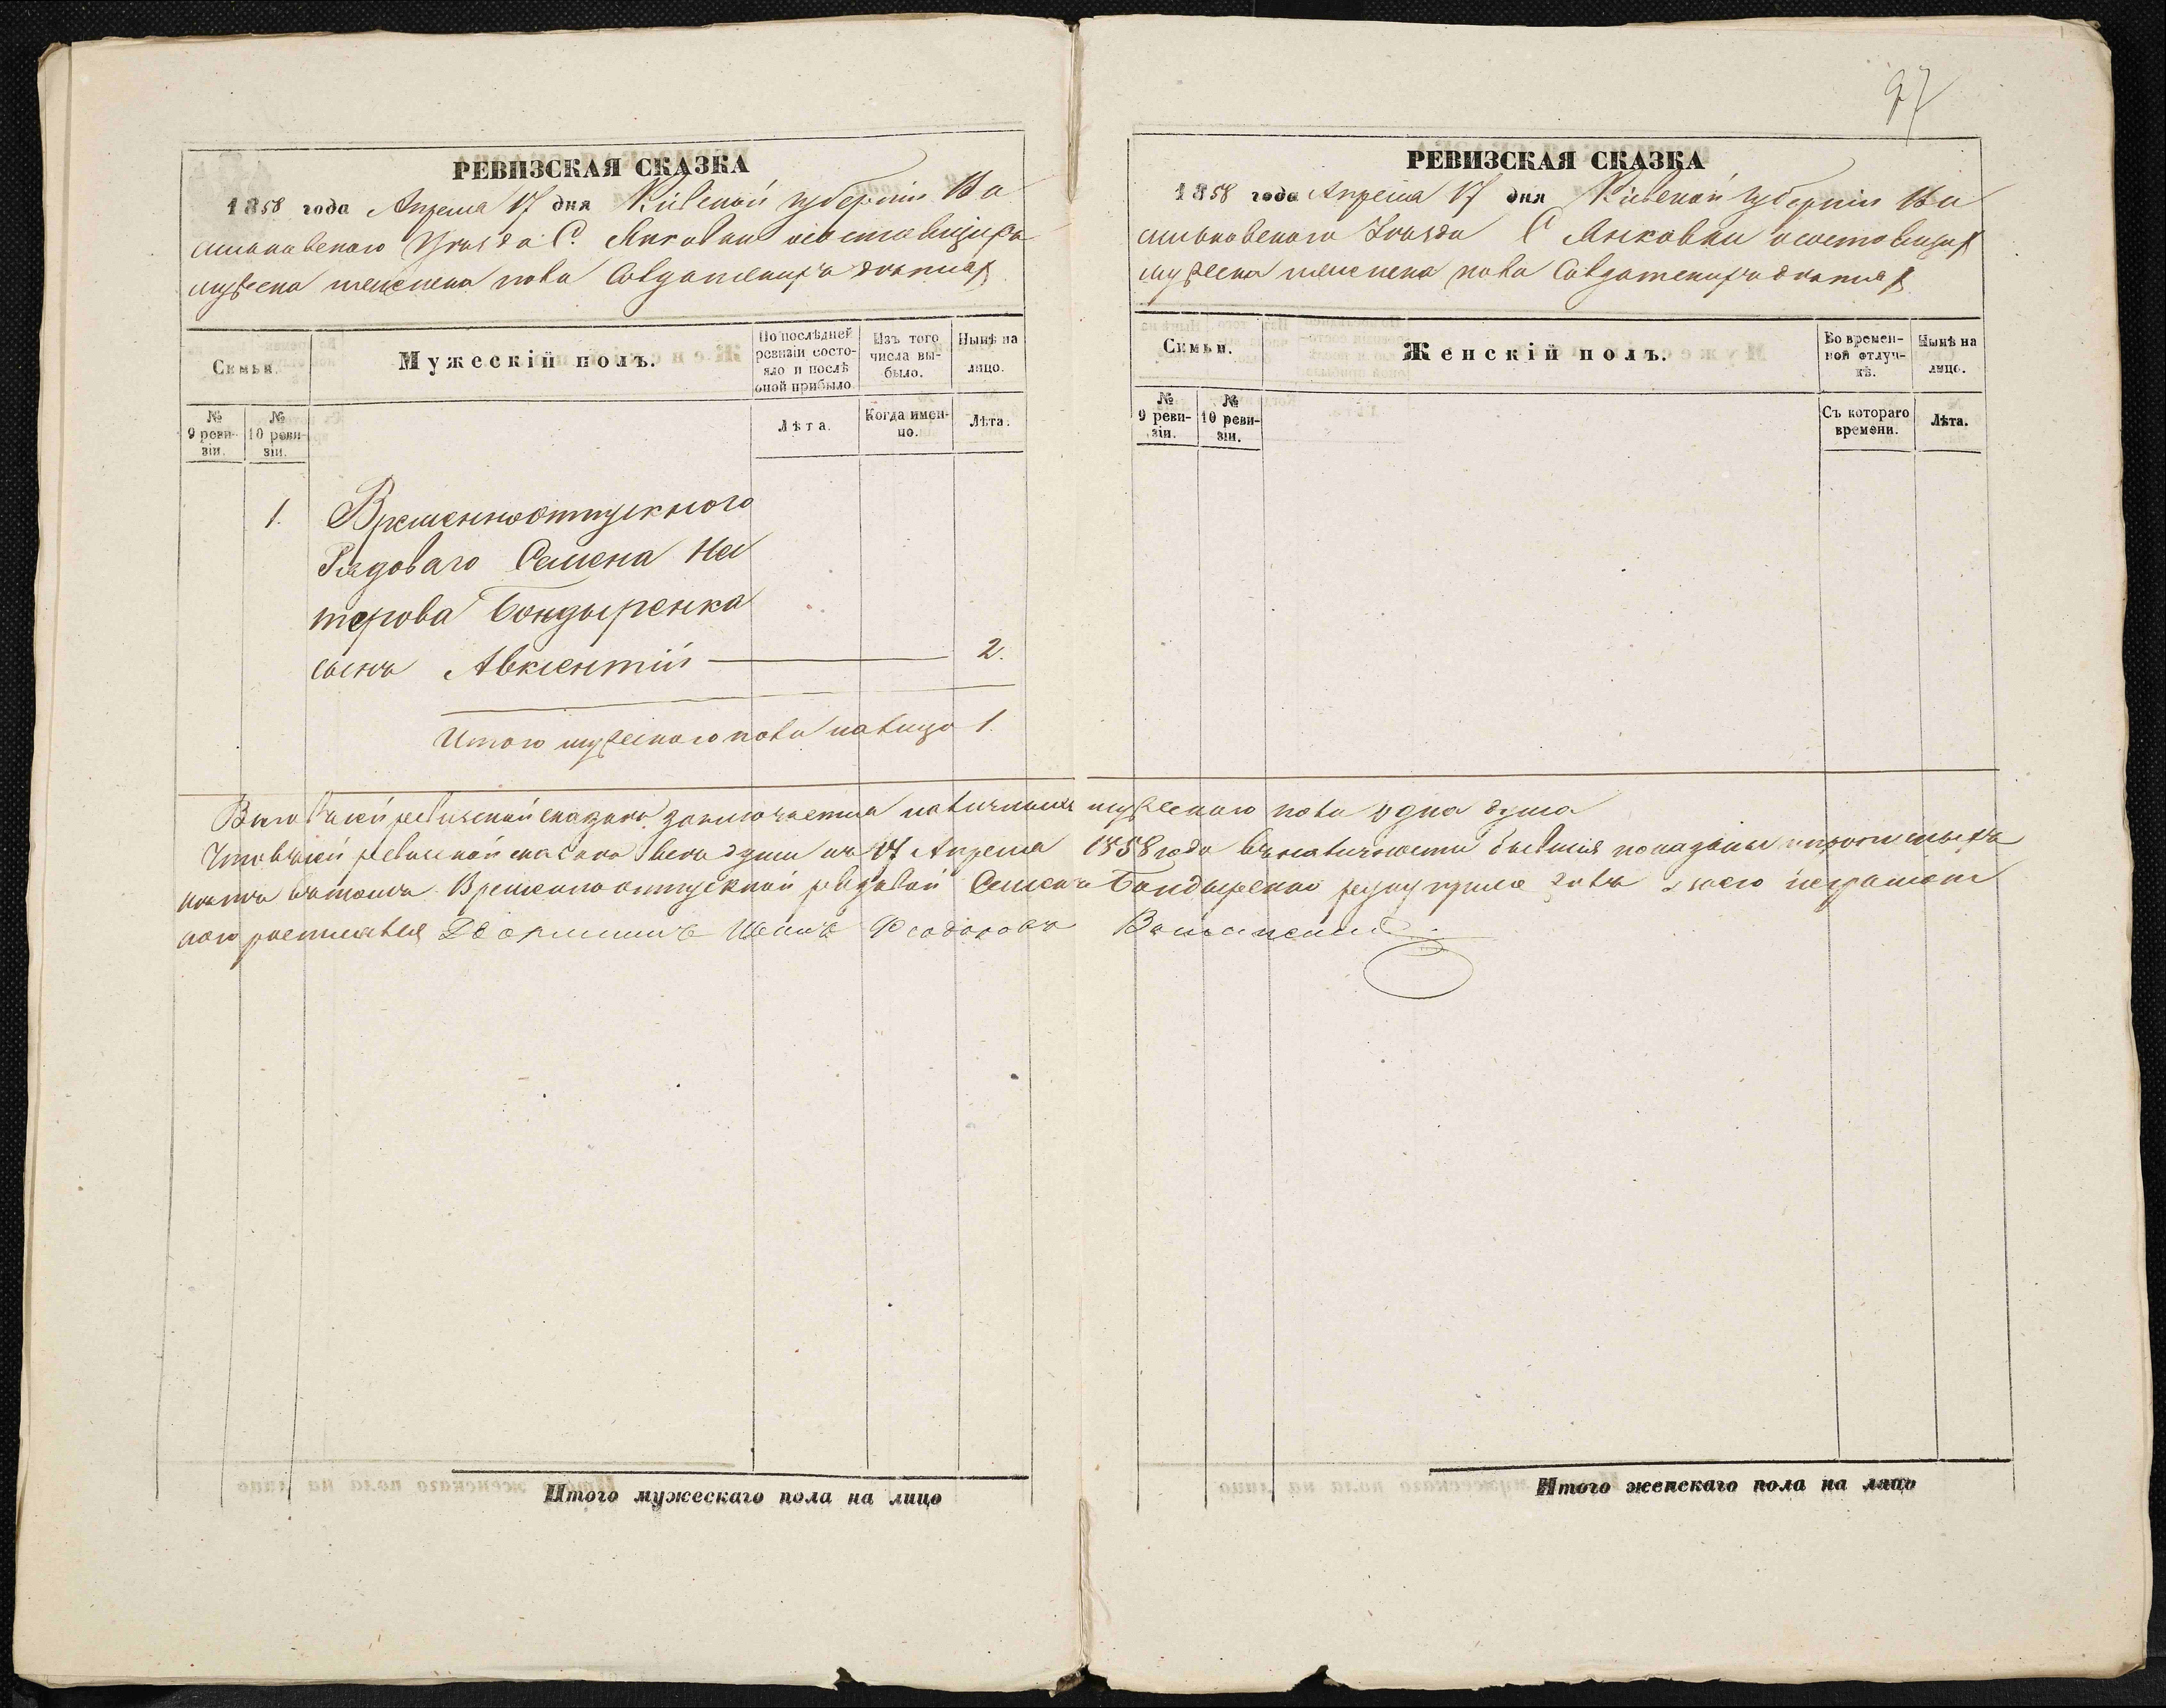 97
РЕВИЗСКАЯ СКАЗКА
1858 года Апреля 17 дня Кіевской губерніи Ва
сильковскаго Уѣзда С. Янковки о состоящихъ
мужеска женска пола Солдатскихъ дѣтяхъ
Семьи.
Мужескій полъ.
По послѣдней ревизіи состояло и послѣ оной прибыло
Изъ того числа выбыло.
Нынѣ на лицо.
№ 9 ревизіи.
№ 10 ревизіи.
Лѣта.
Когда именно.
Лѣта.
1. Временноотпускного
Рядоваго Семена Не
терова Бондыренка
сынъ Авксентій 2.
Итого мужескаго пола налицо 1.
РЕВИЗСКАЯ СКАЗКА
1858 года Апреля 17 дня Кіевской губерніи Ва
сильковскаго Уѣзда С Янковки о состоящихъ
мужеска женска пола Солдатскихъ дѣтяхъ
Семьи.
Женскій полъ.
Во временной отлучкѣ.
Нынѣ на лицо.
№ 9 ревизіи.
№ 10 ревизіи.
Съ котораго времени.
Лѣта.
Въ сей ревизской сказкѣ заключается наличныхъ мужескаго пола одна душа
Что въ сей ревизской сказкѣ всѣ души къ 17 Апреля 1858 года въ наличности бывшія показаны и прописныхъ
нѣтъ въ томъ Временноотпускной рядовой Семенъ Бондыренко
росписался Дворянинъ Иванъ Феодоровъ
Итого мужескаго пола на лицо
Итого женскаго пола на лицо